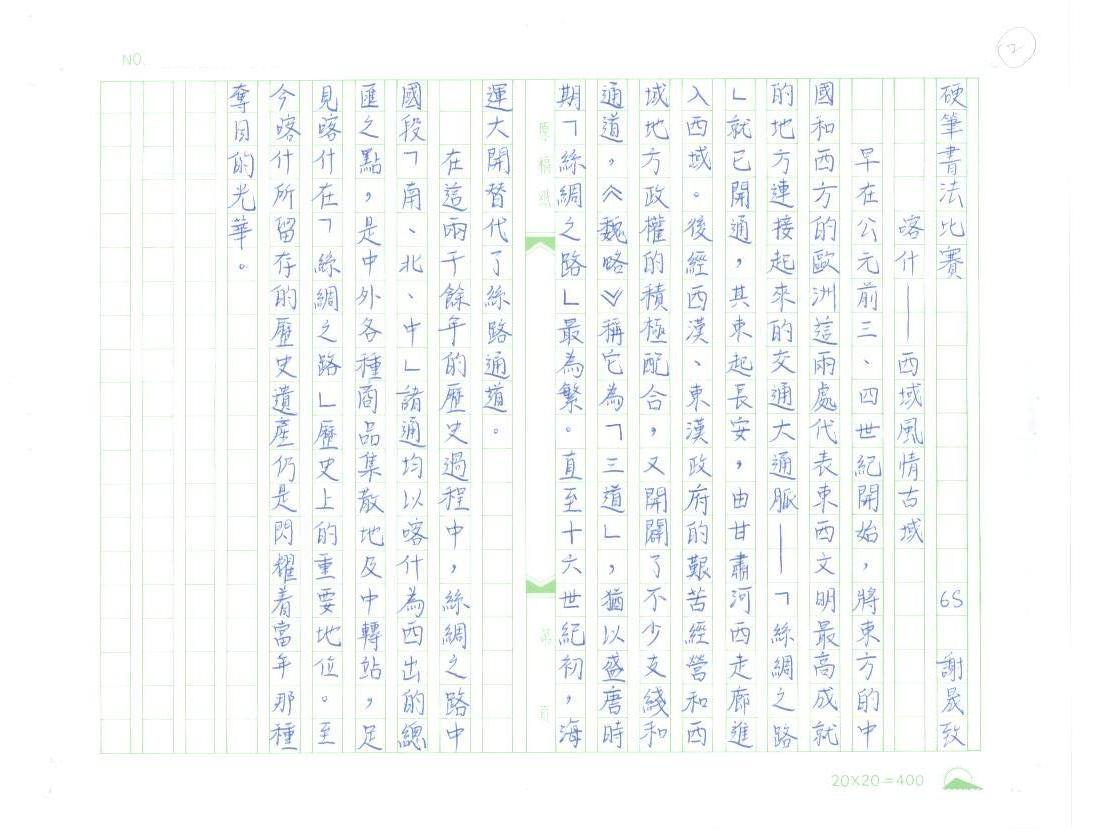 NO.
2
硬筆書法比賽 6S 謝晟致
喀什——西域風情古域
早在公元前三、四世紀開始，將東方的中
國和西方的歐洲這兩處代表東西文明最高成就
的地方連接起來的交通大通脈——「絲綢之路
」就已開通，其東起長安，由甘肅河西走廊進
入西域。後經西漢、東漢政府的艱苦經營和西
域地方政權的積極配合，又開闢了不少支綫和
通道，《魏略》稱它為「三道」，猶以盛唐時
期「絲綢之路」最為繁。直至十六世紀初，海
原稿紙 第 頁
運大開替代了絲路通道。
在這兩千餘年的歷史過程中，絲綢之路中
國段「南、北、中」諸通均以喀什為西出的總
匯之點，是中外各種商品集散地及中轉站，足
見喀什在「絲綢之路」歷史上的重要地位。至
今喀什所留存的歷史遺產仍是閃耀着當年那種
奪目的光華。
20×20=400